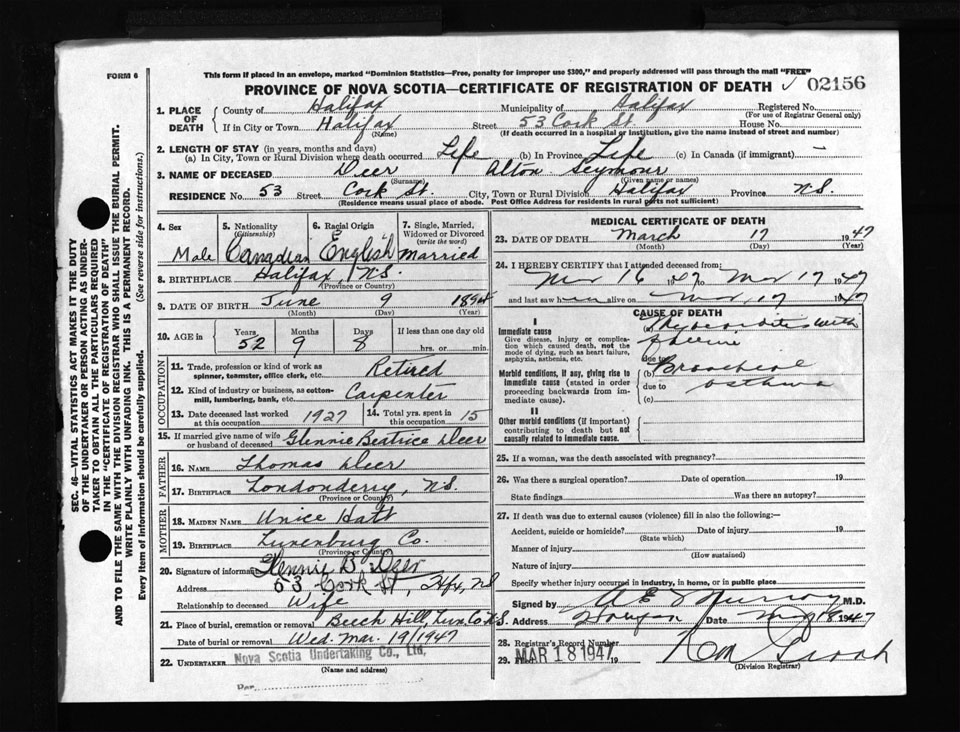 FORM 6
This form if placed in an envelope, marked "Dominion Statistics—Free, penalty for improper use $300," and properly addressed will pass through the mail "FREE"
PROVINCE OF NOVA SCOTIA—CERTIFICATE OF REGISTRATION OF DEATH 02156
SEC. 46—VITAL STATISTICS ACT MAKES IT THE DUTY
OF THE UNDERTAKER OR PERSON ACTING AS UNDER-
TAKER TO OBTAIN ALL THE PARTICULARS REQUIRED
IN THE "CERTIFICATE OF REGISTRATION OF DEATH"
AND TO FILE THE SAME WITH THE DIVISION REGISTRAR WHO SHALL ISSUE THE BURIAL PERMIT.
WRITE PLAINLY WITH UNFADING INK. THIS IS A PERMANENT RECORD.
Every item of information should be carefully supplied. (See reverse side for instructions.)
1. PLACE OF DEATH
County of Halifax Municipality of Halifax Registered No.
(For use of Registrar General only)
If in City or Town Halifax Street 53 Cork St. House No.
(Name) (If death occurred in a hospital or institution, give the name instead of street and number)
2. LENGTH OF STAY (in years, months and days)
(a) In City, Town or Rural Division where death occurred Life (b) In Province Life (c) In Canada (if immigrant) —
3. NAME OF DECEASED Deer Alton Seymour
(Surname) (Given name or names)
RESIDENCE No. 53 Street Cork St. City, Town or Rural Division Halifax Province N.S.
(Residence means usual place of abode. Post Office Address for residents in rural parts not sufficient)
4. Sex Male
5. Nationality (Citizenship) Canadian
6. Racial Origin English
7. Single, Married, Widowed or Divorced (write the word) Married
8. BIRTHPLACE Halifax, N.S.
(Province or Country)
9. DATE OF BIRTH June 9 1894
(Month) (Day) (Year)
10. AGE in Years 52 Months 9 Days 8 If less than one day old
hrs. or min.
OCCUPATION
11. Trade, profession or kind of work as spinner, teamster, office clerk, etc. Retired
12. Kind of industry or business, as cotton-mill, lumbering, bank, etc. Carpenter
13. Date deceased last worked at this occupation 1927
14. Total yrs. spent in this occupation 15
15. If married give name of wife or husband of deceased Glennie Beatrice Deer
FATHER
16. NAME Thomas Deer
17. BIRTHPLACE Londonderry, N.S.
(Province or Country)
MOTHER
18. MAIDEN NAME Unice Hatt
19. BIRTHPLACE Lunenburg Co.
(Province or Country)
20. Signature of informant Glennie B. Deer
Address 53 Cork St, Hfx, N.S
Relationship to deceased Wife
21. Place of burial, cremation or removal Beech Hill, Lun. Co. N.S.
Date of burial or removal Wed. Mar. 19/1947
22. UNDERTAKER Nova Scotia Undertaking Co., Ltd,
(Name and Address)
Per
MEDICAL CERTIFICATE OF DEATH
23. DATE OF DEATH March 17 1947
(Month) (Day) (Year)
24. I HEREBY CERTIFY that I attended deceased from:
Mar 16 1947 to Mar 17 1947
and last saw him alive on Mar 17 1947
CAUSE OF DEATH
I
Immediate cause
Give disease, injury or complication which caused death, not the mode of dying, such as heart failure, asphyxia, asthenia, etc.
(a) Myocarditis with
due to
Morbid conditions, if any, giving rise to immediate cause (stated in order proceeding backwards from immediate cause).
(b) Bronchial
due to asthma
(c)
II
Other morbid conditions (if important) contributing to death but not causally related to immediate cause.
25. If a woman, was the death associated with pregnancy?
26. Was there a surgical operation? Date of operation 19
State findings Was there an autopsy?
27. If death was due to external causes (violence) fill in also the following:—
Accident, suicide or homicide? Date of injury 19
(State which)
Manner of injury
(How sustained)
Nature of injury
Specify whether injury occurred in industry, in home, or in public place
Signed by A E Murray M.D.
Address Halifax Date Mar 18 1947
28. Registrar's Record Number
29. Filed MAR 18 1947 19
(Division Registrar)